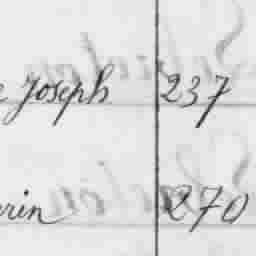 Joseph 237
rin 270